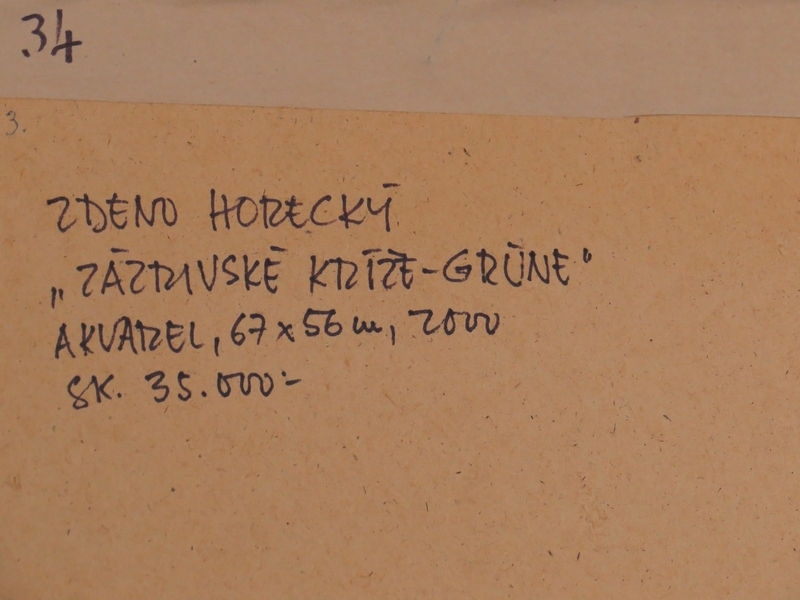 34
3.
ZDENO HORECKÝ
„ZÁZRIVSKÉ KRÍŽE-GRÚNE"
AKVAREL, 67 x 56 cm, 2000
SK. 35.000:-